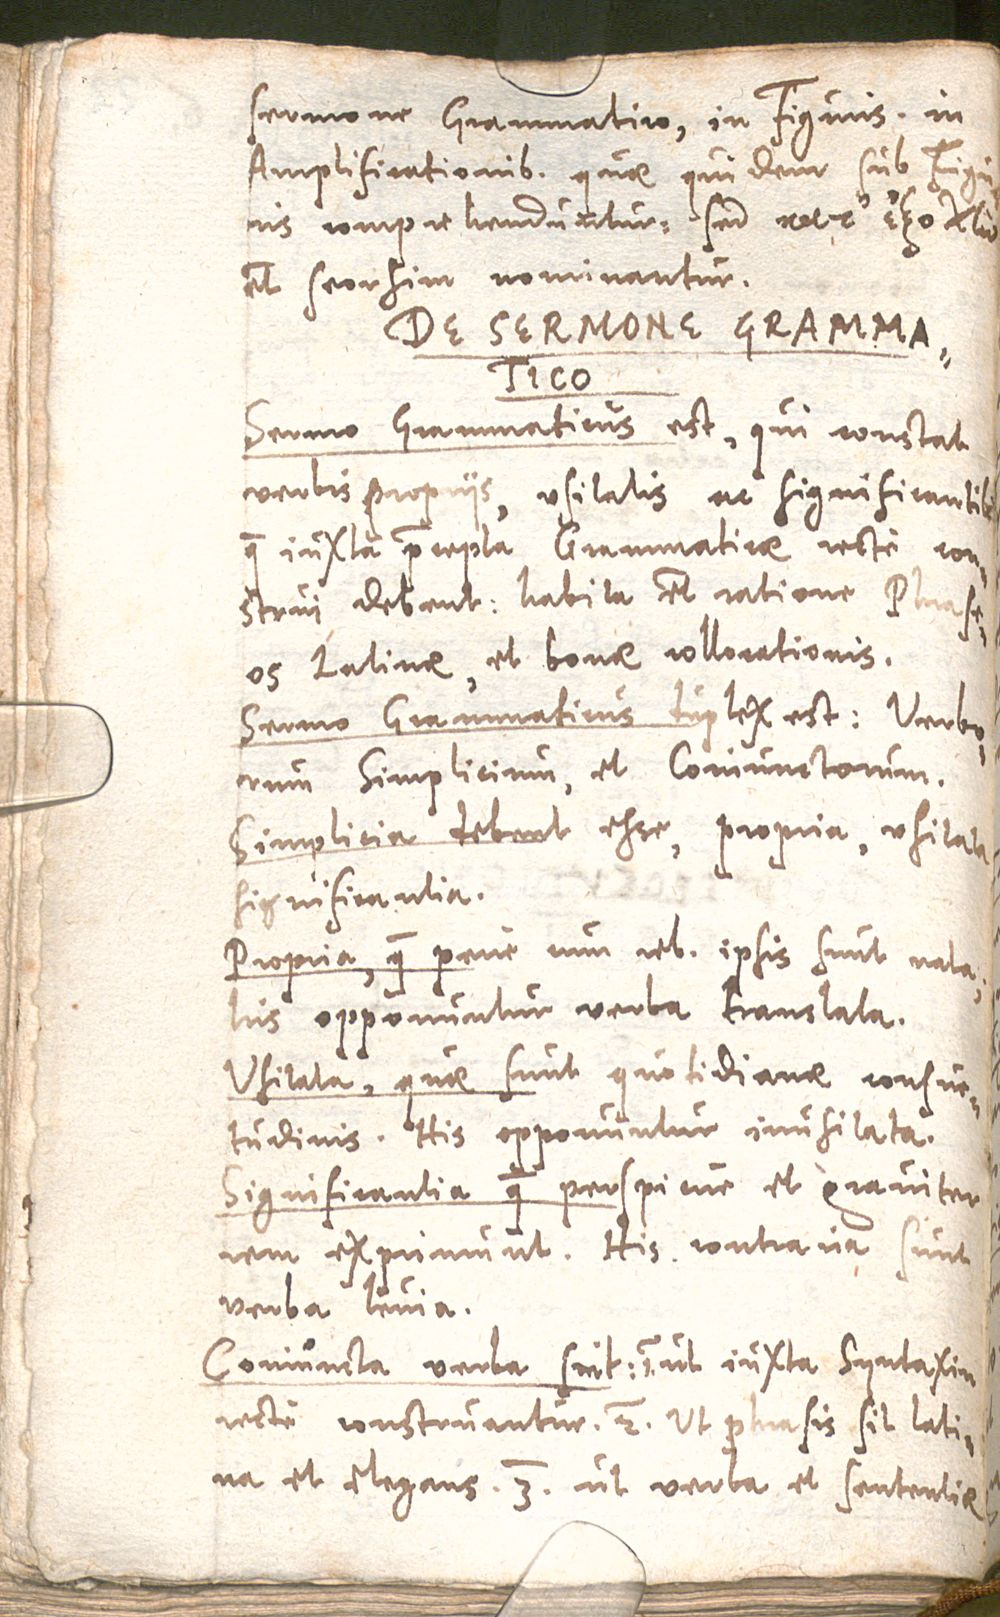 sermone Grammatico, in Figuris. in
Amplificationib. quæ quidem sub Figu
ris comprehenduntur: sed κατ' ἐξοχὴν
et̃ seorsim nominantur.
DE SERMONE GRAMMA„
TICO
Sermo Grammaticus est, qui constat
verbis proprijs, vsitatis ac significantib
q̄ iuxta p̄cepta Grammaticæ rectè con„
strui debent: habita et̃ ratione Phrase„
os Latinæ, et bonæ collocationis.
Sermo Grammaticus duplex est: Verbo„
rum Simplicium, et Coniunctorum.
Simplicia debent esse, propria, vsitata
significantia.
Propria, q̄ penè cum reb. ipsis sunt nata;
his opponuntur verba translata.
Vsitata, quæ sunt quotidianæ consue„
tudinis. His opponuntur inusitata.
Significantia q̄ perspicuè et grauiter
rem exprimunt. His contraria sunt
verba leuia.
Coniuncta verba sint: 1. ut iuxta Syntaxin
rectè construantur. 2. Ut phrasis sit lati„
na et elegans. 3. ut verba et sententiæ